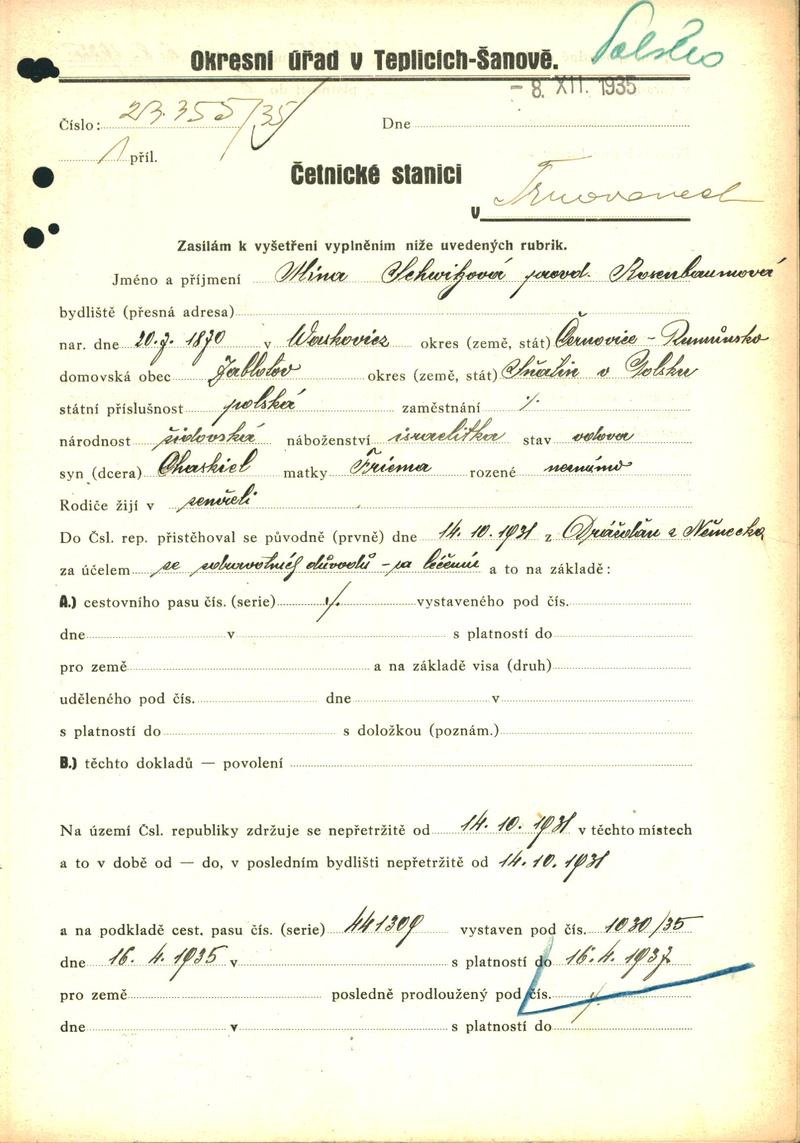 Polsko
Okresní úřad v Teplicích-Šanově.
- 8. XII. 1935
Číslo: 23.355/35 Dne
1 příl.
Četnické stanici
v Trnovanech
Zasílám k vyšetření vyplněním níže uvedených rubrik.
Jméno a příjmení Mina provd. Rosenbaumová
bydliště (přesná adresa)
nar. dne 20.7. 1870 v Waskovicz okres (země, stát) Černovice - Rumůnsko
domovská obec Jablotov okres (země, stát) Sňatin v Polsku
státní příslušnost polská zaměstnání ·/.
národnost židovská náboženství israelitka stav vdova
syn (dcera) Chaskiel matky Friema rozené neznámo
Rodiče žijí v zemřeli
Do Čsl. rep. přistěhoval se původně (prvně) dne 14. 10. 1931 z Drážďan z Německa
za účelem ze zdravotních důvodů - za léčením a to na základě:
A.) cestovního pasu čís. (serie) ·/. vystaveného pod čís.
dne v s platností do
pro země a na základě visa (druh)
uděleného pod čís. dne v
s platností do s doložkou (poznám.)
B.) těchto dokladů — povolení
Na území Čsl. republiky zdržuje se nepřetržitě od 14. 10. 1931 v těchto místech
a to v době od — do, v posledním bydlišti nepřetržitě od 14. 10. 1931
a na podkladě cest. pasu čís. (serie) 441309 vystaven pod čís. 1030/35
dne 16. 4. 1935 v s platností do 16. 4. 1937
pro země posledně prodloužený pod čís. ·/.
dne v s platností do